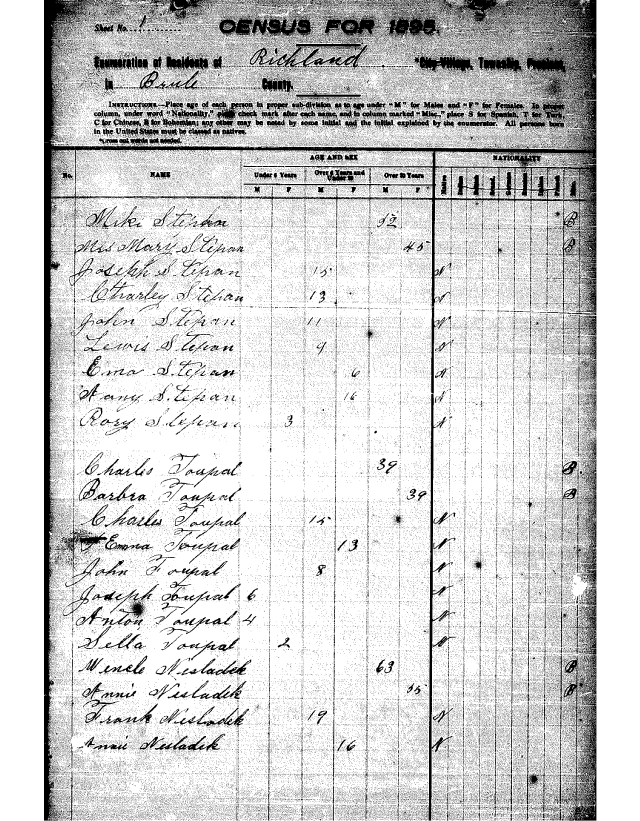 Sheet No. 1
CENSUS FOR 1895.
Enumeration of Residents of Richland City, Village, Township, Precinct,
in Brule County.
INSTRUCTIONS.—Place age of each person in proper sub-division as to age under "M" for Males and "F" for Females. In proper
column, under word "Nationality," place check mark after each name, and in column marked "Misc.," place S for Spanish, T for Turk,
C for Chinese, B for Bohemian; any other may be noted by some initial and the initial explained by the enumerator. All persons born
in the United States must be classed as natives.
*Cross out words not needed.
AGE AND SEX NATIONALITY
No. NAME Under 6 Years Over 6 Years and Under 20 Over 20 Years
M F M F M F
Mike Stephn 52 B
Mrs Mary Stepan 45 B
Joseph Stepan 15 N
Charley Stepan 13 N
John Stepan 11 N
Lewis Stepan 9 N
Ema Stepan 6 N
Stepan 16 N
Rory Stepan 3 N
Charles Toupal 39 B
Barbra Toupal 39 B
Charles Toupal 15 N
Emma Toupal 13 N
John Toupal 8 N
Joseph Toupal 6 N
Anton Toupal 4 N
Sella Toupal 2 N
Wencle Nesladek 63 B
Annie Nesladek 55 B
Frank Nesladek 19 N
Annie Nesladek 16 N